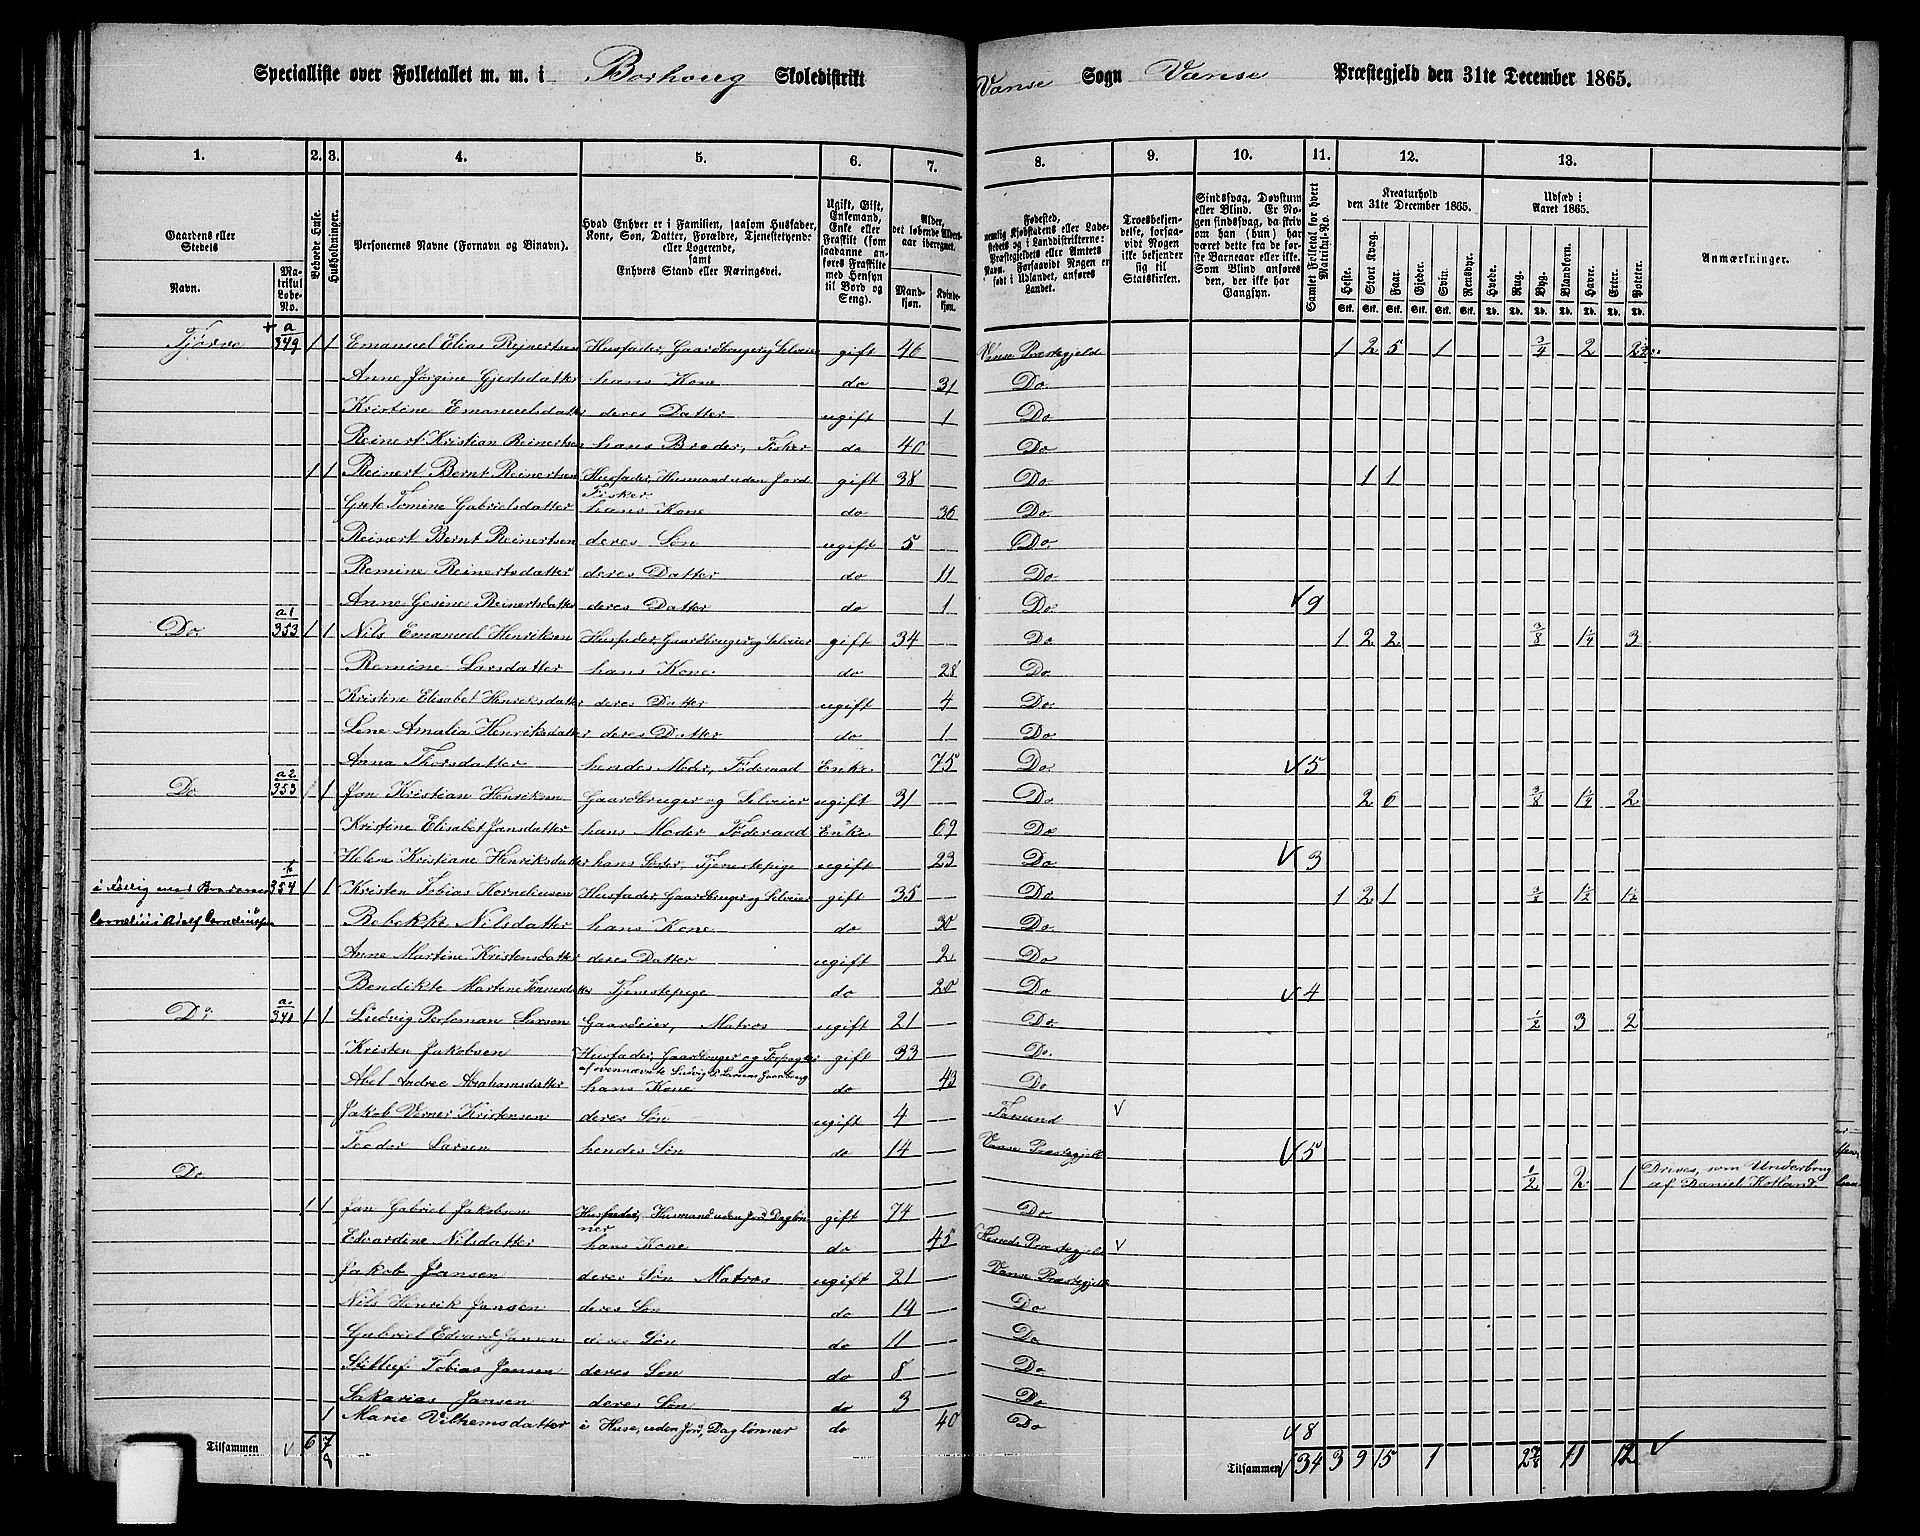 Specialliste over Folketallet m. m. i Borhoug Skoledistrikt Vanse Sogn Vanse Præstegjeld den 31te December 1865.
1. 2. 3. 4. 5. 6. 7. 8. 9. 10. 11. 12. 13.
Gaardens eller Stedets
Navn.
Matrikul Løbe-No.
Beboede Huse.
Husholdninger.
Personernes Navne (Fornavn og Binavn).
Hvad Enhver er i Familien, saasom Husfader, Kone, Søn, Datter, Forældre, Tjenestetyende eller Logerende, samt Enhvers Stand eller Næringsvei.
Ugift, Gift, Enkemand, Enke eller Fraskilt (som saadanne anføres Fraskilte med Hensyn til Bord og Seng).
Alder, det løbende Aldersaar iberegnet.
Mandkjøn.
Kvindekjøn.
Fødested, nemlig Kjøbstadens eller Ladestedets og i Landdistrikterne: Præstegjeldets eller Amtets Navn. Forsaavidt Nogen er født i Udlandet, anføres Landet.
Troesbekjendelse, forsaavidt Nogen ikke bekjender sig til Statskirken.
Sindssvag, Døvstum eller Blind. Er Nogen sindssvag, da skriv om han (hun) har været dette fra de første Barneaar eller ikke. Som Blind anføres den, der ikke har Gangsyn.
Samlet Folketal for hvert Matrikul-No.
Kreaturhold den 31te December 1865.
Heste. Stort Kvæg. Faar. Gjeder. Svin. Rensdyr.
Udsæd i Aaret 1865.
Hvede. Rug. Byg. Blandkorn. Havre. Erter. Poteter.
Stk. Stk. Stk. Stk. Stk. Stk. Td. Td. Td. Td. Td. Td. Td.
Anmærkninger.
Tjørve a 349 1 1 Emanuel Elias Reinertsen Husfader, Gaardbruger og Selveier gift 46 Vanse Præstegjeld 1 2 5 1 3/4 2 2 1/2
Anne Jørgine Gjertsdatter hans Kone do 31 Do
Kristine Emanuelsdatter deres Datter ugift 1 Do
Reinert Kristian Reinertsen hans Broder, Fisker do 40 Do
1 1 Reinert Bernt Reinertsen Husfader, Husmand uden Jord Fisker gift 38 Do 1 1
Grete Tomine Gabrielsdatter hans Kone do 36 Do
Reinert Bernt Reinertsen deres Søn ugift 5 Do
Remine Reinertsdatter deres Datter do 11 Do
Anne Gesine Reinertsdatter deres Datter do 1 Do 9
Do a1 353 1 1 Nils Emanuel Henriksen Husfader, Gaardbruger og Selveier gift 34 Do 1 2 2 3/8 1 1/4 3
Remine Larsdatter hans Kone do 28 Do
Kristine Elisabet Henriksdatter deres Datter ugift 4 Do
Lene Amalia Henriksdatter deres Datter do 1 Do
Anna Thorsdatter hendes Moder, Føderaad Enke 75 Do 5
Do a2 353 1 1 Jan Kristian Henriksen Gaardbruger og Selveier ugift 31 Do 2 6 3/8 1 1/4 2
Kristine Elisabet Jansdatter hans Moder Føderaad Enke 69 Do
Helene Kristiane Henriksdatter hans Søster, Tjenestepige ugift 23 Do 3
i Fællig med Broderen b 354 1 1 Kristen Tobias Korneliusen Husfader, Gaardbruger og Selveier gift 35 Do 1 2 1 1 1/2 1 1/2
Cornelius Adolf Corneliussen Bebekke Nilsdatter hans Kone do 30 Do
Anne Martine Kristensdatter deres Datter ugift 2 Do
Bendikte Martine Tønnesdatter Tjenestepige do 20 Do 4
Do a 340 1 1 Ludvig Perleman Larsen Gaardeier, Matros ugift 21 Do 1/2 3 2
Kristen Jakobsen Husfader, Gaardbruger og Forpagter af ovennævnte Ludvig P. Larsens Gaardbrug gift 33 Do
Abel Andree Abrahamsdatter hans Kone do 43 Do
Jakob Verner Kristensen deres Søn ugift 4 Farsund
Teodor Larsen hendes Søn do 14 Vanse Præstegjeld 5
Do 1/2 2 1 Drives som Underbrug af Daniel Kotland.
1 1 Jan Gabriel Jakobsen Husfader, Husmand uden Jord Daglønner gift 74 Do
Edvardine Nilsdatter hans Kone do 45 Hereds Præstegjeld
Jakob Jansen deres Søn Matros ugift 21 Vanse Præstegjeld
Nils Henrik Jansen deres Søn do 14 Do
Gabriel Edvard Jansen deres Søn do 11 Do
Tobias Jansen deres Søn do 8 Do
Sakarias Jansen deres Søn do 3 Do
1 Marie Vilhemsdatter i Huse, uden Jord, Daglønner do 40 Do 8
Tilsammen 6 7 8
Tilsammen 34 3 9 15 1 2 7/8 11 12